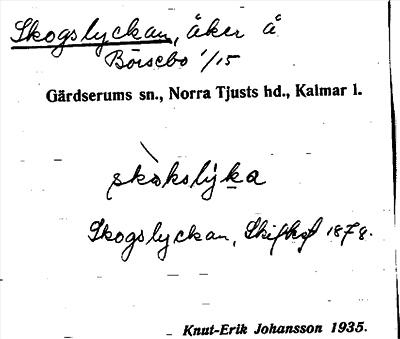 Skogslyckan, åker å
Börsebo 1/15
Gärdserums sn., Norra Tjusts hd., Kalmar l.
skòkslyka
Skogslyckan, Skifteskf 1878.
Knut-Erik Johansson 1935.